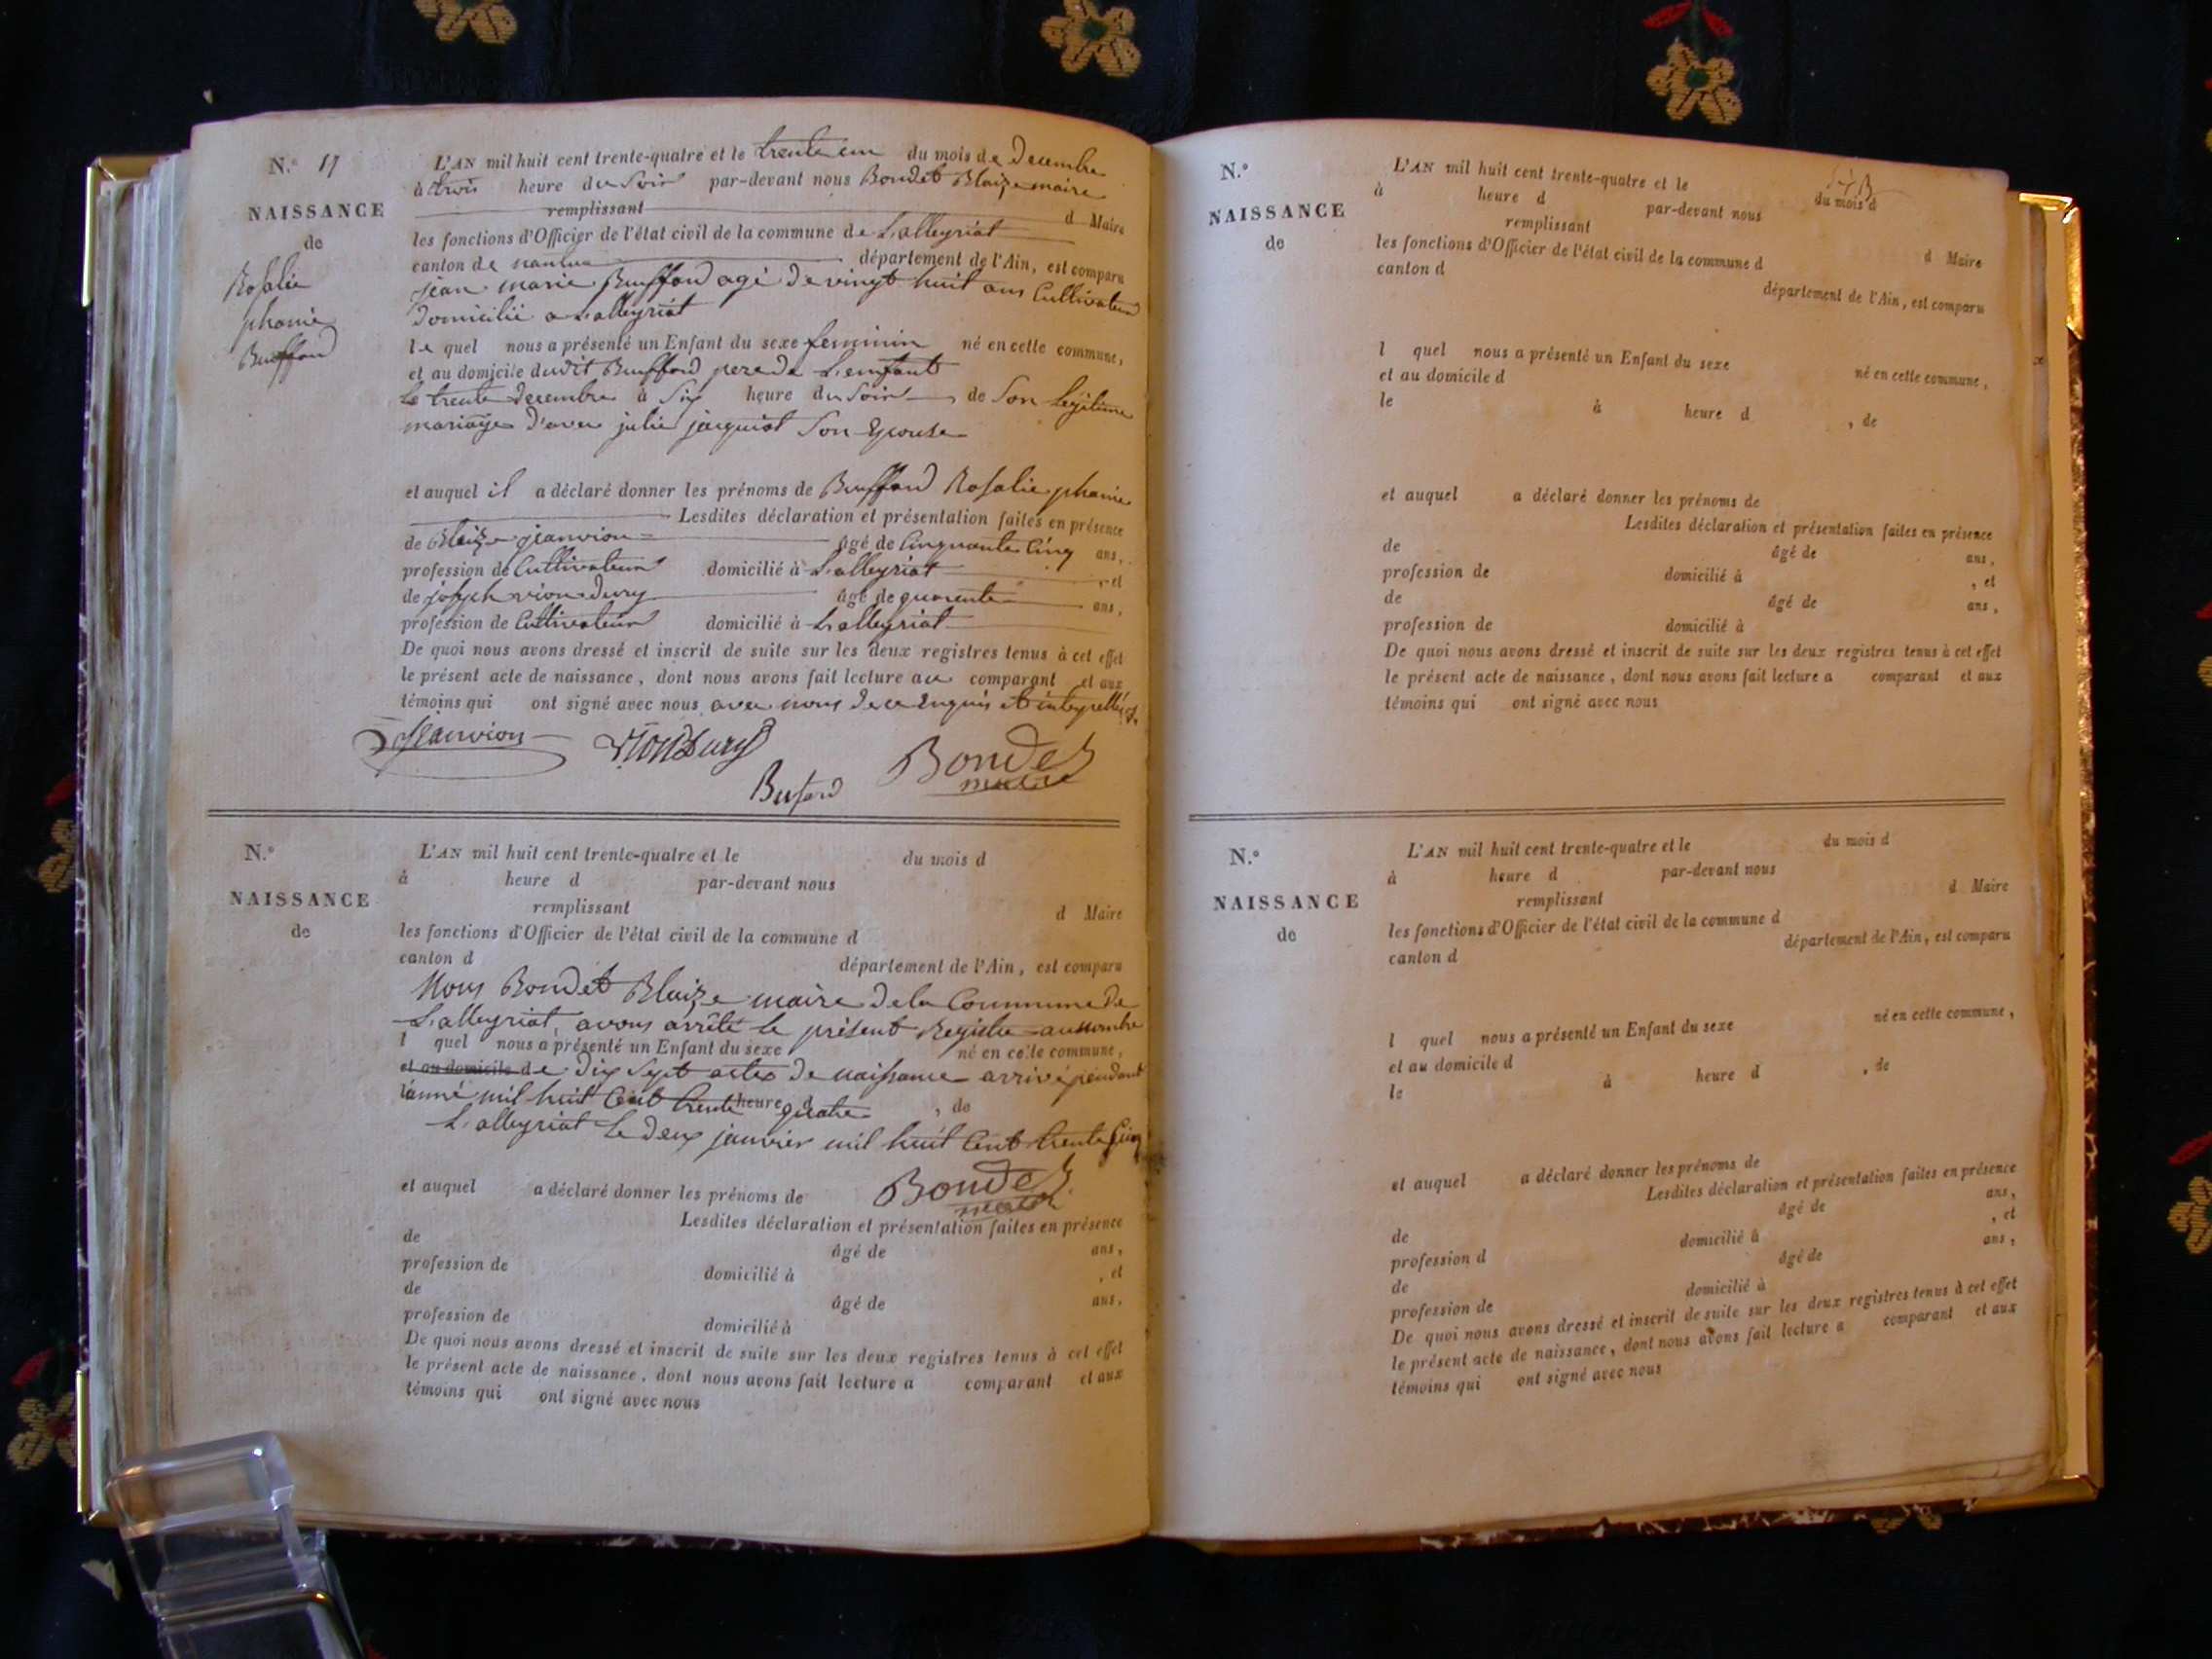 N.° 17
NAISSANCE
de
Rosalie
phanie
Buffard
L'AN mil huit cent trente-quatre et le trente un du mois de Decembre
à trois heure du Soir par-devant nous Bondet Blaize maire
remplissant d Maire
les fonctions d'Officier de l'état civil de la commune de Lalleyriat
canton de nantua département de l'Ain, est comparu
jean marie Buffard agé de vingt huit ans Cultivateur
Domicilié a Lalleyriat
le quel nous a présenté un Enfant du sexe feminin né en cette commune,
et au domicile dudit Buffard pere de L'enfant
le trente decembre à Six heure du Soir, de Son legitime
mariage d'avec julie jacquiot Son Epouse
et auquel il a déclaré donner les prénoms de Buffard Rosalie phanie
Lesdites déclaration et présentation faites en présence
de Blaize jeanvion âgé de Cinquante Cinq ans,
profession de Cultivateur domicilié à Lalleyriat, et
de joseph vion-Dury âgé de quarente ans,
profession de Cultivateur domicilié à Lalleyriat
De quoi nous avons dressé et inscrit de suite sur les deux registres tenus à cet effet
le présent acte de naissance, dont nous avons fait lecture au comparant et aux
témoins qui ont signé avec nous avec nous de ce Enquis et interpellés
Jeanvion VionDury Bondet
maire
Bufard
N.°
NAISSANCE
de
L'AN mil huit cent trente-quatre et le du mois d
à heure d par-devant nous
remplissant d Maire
les fonctions d'Officier de l'état civil de la commune d
canton d département de l'Ain, est comparu
Nous Bondet Blaize maire de la Commune de
Lalleyriat, avons arrêté le présent Registre au nombre
l quel nous a présenté un Enfant du sexe né en cette commune,
et au domicile de Dix Sept actes de naissance arrivé pendant
l'anné mil huit Cent trente heure d quatre , de
Lalleyriat le deux janvier mil huit Cent trente Cinq
et auquel a déclaré donner les prénoms de Bondet
maire
Lesdites déclaration et présentation faites en présence
de âgé de ans,
profession de domicilié à , et
de âgé de ans,
profession de domicilié à
De quoi nous avons dressé et inscrit de suite sur les deux registres tenus à cet effet
le présent acte de naissance, dont nous avons fait lecture a comparant et aux
témoins qui ont signé avec nous
N.°
NAISSANCE
de
L'AN mil huit cent trente-quatre et le du mois d
à heure d par-devant nous
remplissant d Maire
les fonctions d'Officier de l'état civil de la commune d
canton d département de l'Ain, est comparu
l quel nous a présenté un Enfant du sexe né en cette commune,
et au domicile d
le à heure d , de
et auquel a déclaré donner les prénoms de
Lesdites déclaration et présentation faites en présence
de âgé de ans,
profession de domicilié à , et
de âgé de ans,
profession de domicilié à
De quoi nous avons dressé et inscrit de suite sur les deux registres tenus à cet effet
le présent acte de naissance, dont nous avons fait lecture a comparant et aux
témoins qui ont signé avec nous
N.°
NAISSANCE
de
L'AN mil huit cent trente-quatre et le du mois d
à heure d par-devant nous
remplissant d Maire
les fonctions d'Officier de l'état civil de la commune d
canton d département de l'Ain, est comparu
l quel nous a présenté un Enfant du sexe né en cette commune,
et au domicile d
le à heure d , de
et auquel a déclaré donner les prénoms de
Lesdites déclaration et présentation faites en présence
de âgé de ans,
profession d domicilié à , et
de âgé de ans,
profession de domicilié à
De quoi nous avons dressé et inscrit de suite sur les deux registres tenus à cet effet
le présent acte de naissance, dont nous avons fait lecture a comparant et aux
témoins qui ont signé avec nous